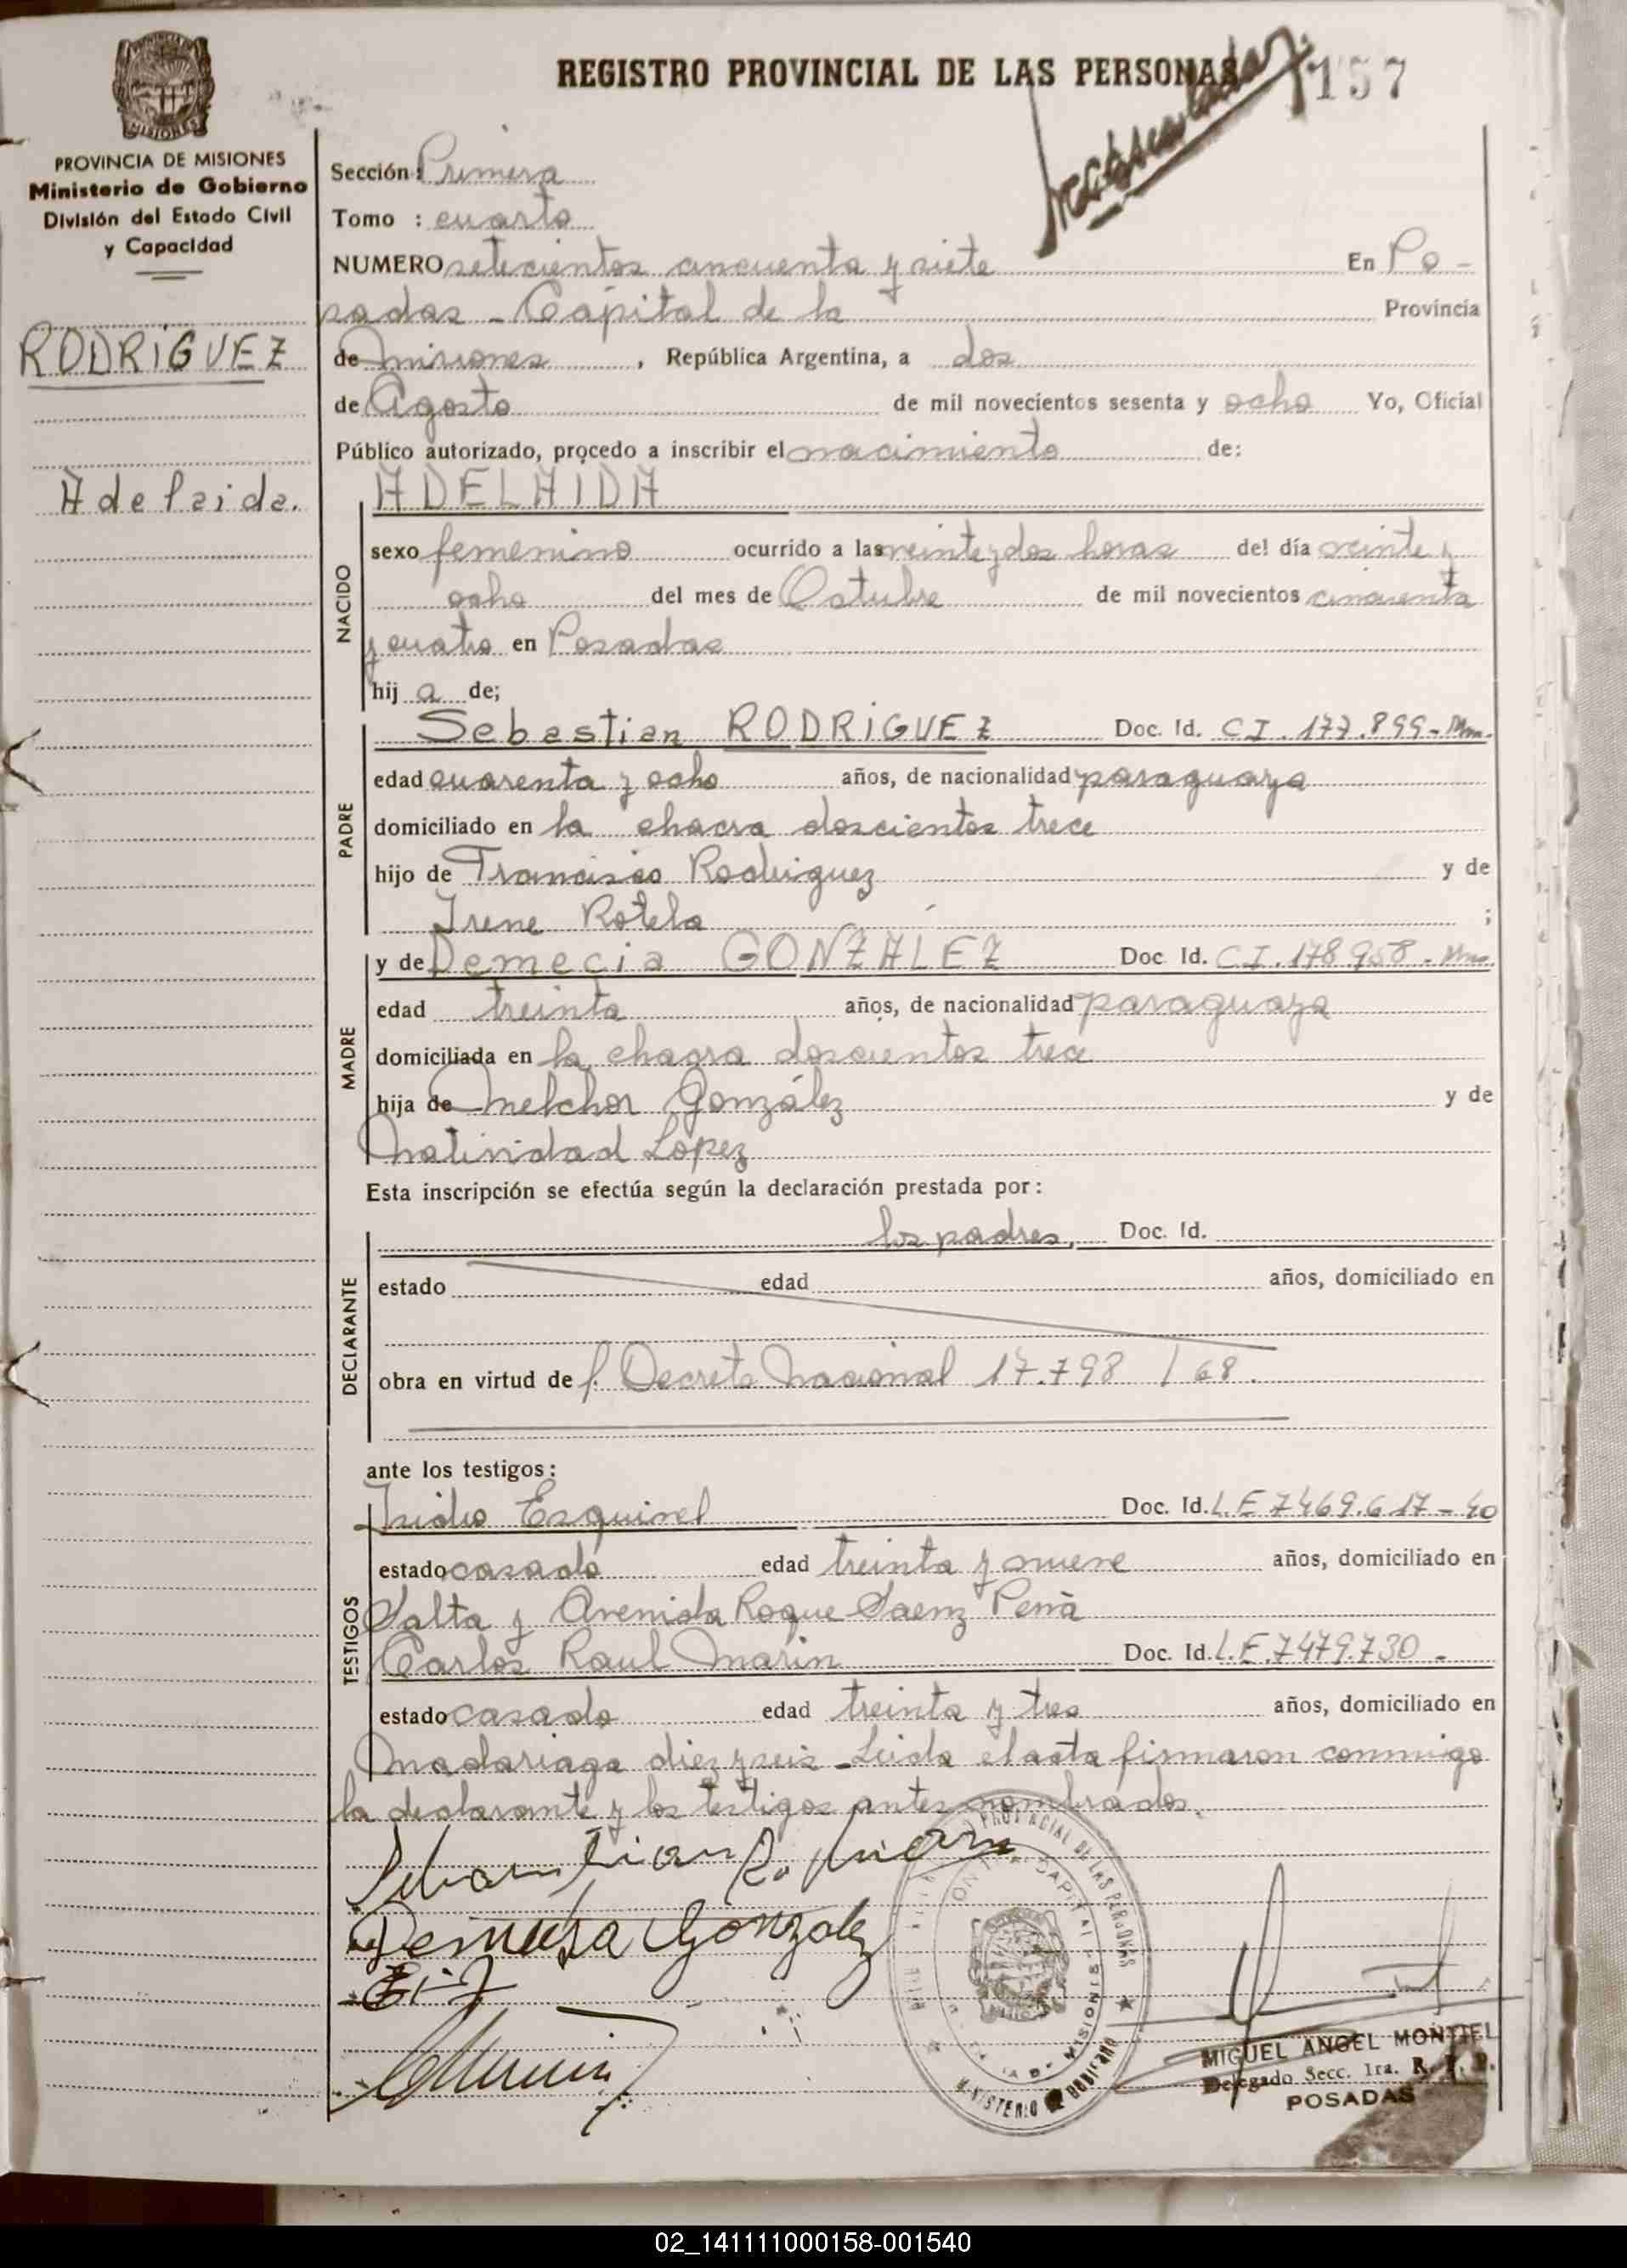 REGISTRO PROVINCIAL DE LAS PERSONAS
157
PROVINCIA DE MISIONES
Ministerio de Gobierno
División del Estado Civil
y Capacidad
RODRIGUEZ
Adelaida.
Sección: Primera
Tomo : cuarto
NUMERO setecientos cincuenta y siete En Po-
sadas - Capital de la Provincia
de Misiones, República Argentina, a dos
de Agosto de mil novecientos sesenta y ocho Yo, Oficial
Público autorizado, procedo a inscribir el nacimiento de:
NACIDO
ADELAIDA
sexo femenino ocurrido a las veinte y dos horas del día veinte y
ocho del mes de Octubre de mil novecientos cincuenta
y cuatro en Posadas
hij a de;
PADRE
Sebastian RODRIGUEZ Doc. Id. C.I. 177.899-Mnes.
edad cuarenta y ocho años, de nacionalidad paraguaya
domiciliado en la chacra doscientos trece
hijo de Francisco Rodriguez y de
Irene Rotela ;
MADRE
y de Demecia GONZALEZ Doc. Id. C.I. 178958-Mnes.
edad treinta años, de nacionalidad paraguaya
domiciliada en la chacra doscientos trece
hija de Melchor González y de
Natividad López
Esta inscripción se efectúa según la declaración prestada por:
DECLARANTE
los padres, Doc. Id.
estado edad años, domiciliado en
obra en virtud de f. Decreto Nacional 17.798 / 68.
ante los testigos:
TESTIGOS
Isidro Esquivel Doc. Id. L.E 7469.617-40
estado casado edad treinta y nueve años, domiciliado en
Salta y Avenida Roque Saenz Peña
Carlos Raul Marin Doc. Id. L.E.7479.730.
estado casado edad treinta y tres años, domiciliado en
Madariaga diez y seis - Leida el acta firmaron conmigo
la declarante y los testigos antes nombrados.
Sebastian Rodriguez
Demecia Gonzalez
PROVINCIAL DE LAS PERSONAS
MINISTERIO DE GOBIERNO
MIGUEL ANGEL MONTIEL
Delegado Secc. 1ra. R. P. P.
POSADAS
02_141111000158-001540